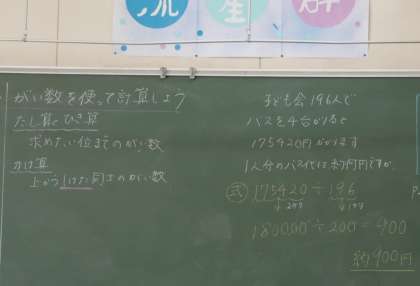 がい数を使って計算しよう
たし算とひき算
求めたい位までのがい数
かけ算
上から1けた同士のがい数
子ども会196人で
バスを4台かりると
175420円かかります
1人分のバス代は約何円ですか。
式 175420÷196
180000÷200=900
約900円